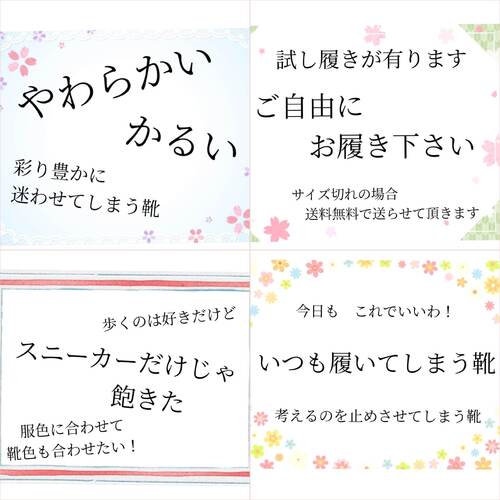 やわらかい
かるい
彩り豊かに
迷わせてしまう靴
試し履きが有ります
ご自由に
お履き下さい
サイズ切れの場合
送料無料で送らせて頂きます
歩くのは好きだけど
スニーカーだけじゃ
飽きた
服色に合わせて
靴色も合わせたい！
今日も　これでいいわ！
いつも履いてしまう靴
考えるのを止めさせてしまう靴